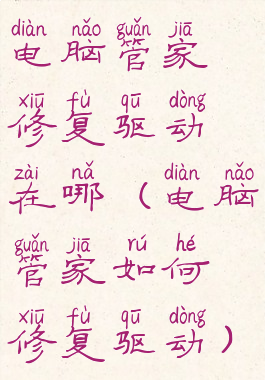 diàn nǎo guǎn jiā
电脑管家
xiū fù qū dòng
修复驱动
zài nǎ diàn nǎo
在哪（电脑
guǎn jiā rú hé
管家如何
xiū fù qū dòng
修复驱动）